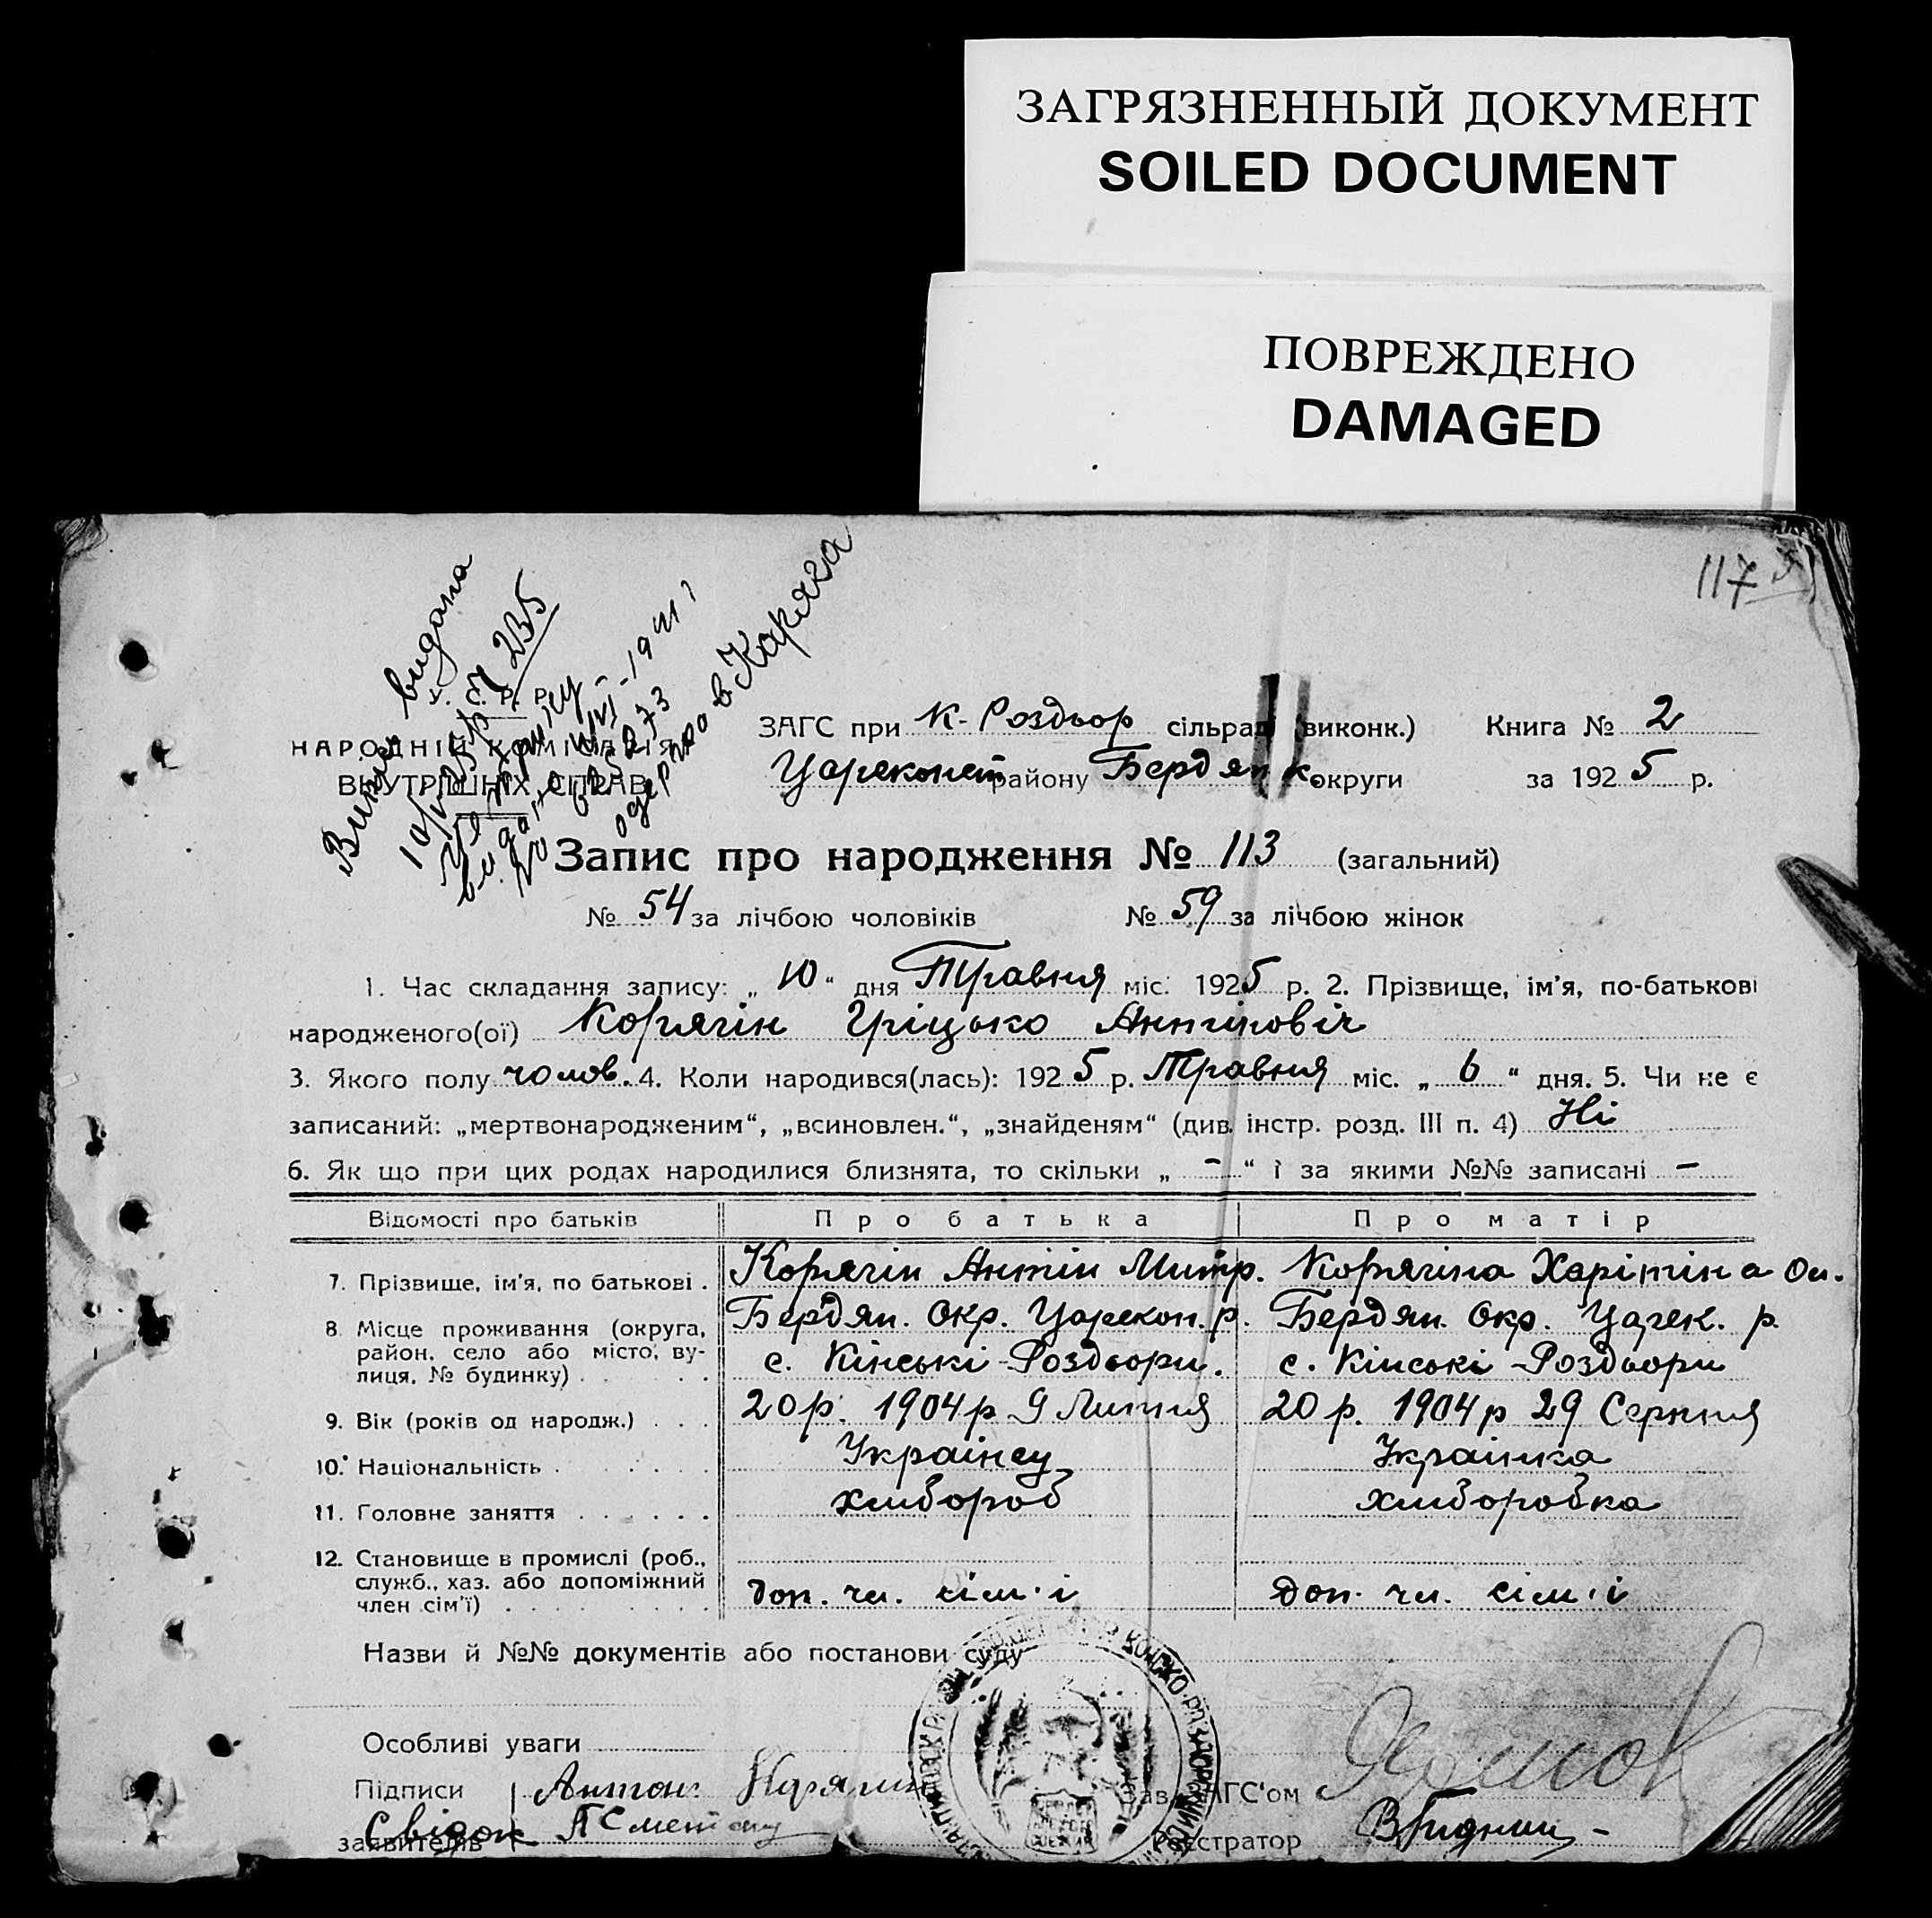 ЗАГРЯЗНЕННЫЙ ДОКУМЕНТ
SOILED DOCUMENT
ПОВРЕЖДЕНО
DAMAGED
117
видана
235
одержав Каряга
У. С. Р. Р.
НАРОДНІЙ КОМІСАРІЯТ
ВНУТРІШНІХ СПРАВ
ЗАГС при К-Роздьор сільраді (виконк.) Книга № 2
Цареконст району Бердянск округи за 1925 р.
Запис про народження № 113 (загальний)
№ 54 за лічбою чоловіків № 59 за лічбою жінок
1. Час складання запису: „ 10 “ дня Травня міс. 1925 р. 2. Прізвище, ім'я, по-батькові
народженого(ої) Корягін Гріцько Антипович
3. Якого полу чолов. 4. Коли народився(лась): 1925 р. Травня міс. „ 6 “ дня. 5. Чи не є
записаний: „мертвонародженим“, „всиновлен.“, „знайденям“ (див. інстр. розд. III п. 4) Ні
6. Як що при цих родах народилися близнята, то скільки „ - “ і за якими №№ записані -
Відомості про батьків Про батька Про матір
7. Прізвище, ім'я, по батькові . Корягін Антін Митр. Корягіна Харітіна Он.
8. Місце проживання (округа, Бердян. Окр. Царекон. р. Бердян. Окр. Царек. р.
район, село або місто, ву- с. Кінські-Роздьори. с. Кінські-Роздьори
лиця, № будинку) . . .
9. Вік (років од народж.) . . . 20 р. 1904 р 9 Липня 20 р. 1904 р 29 Серпня
10. Національність . . . . . Українец Украінка
11. Головне заняття . . . . . . хлібороб хліборобка
12. Становище в промислі (роб.,
служб., хаз. або допоміжний
член сім'ї) . . . . . . . . доп. чл. сім'і доп. чл. сім'і
Назви й №№ документів або постанови суду
Особливі уваги
Підписи Антон Корягин Зав. ЗАГС'ом
заявителів Свідок Реєстратор
КОНСКО-РАЗДОРСКИЙ